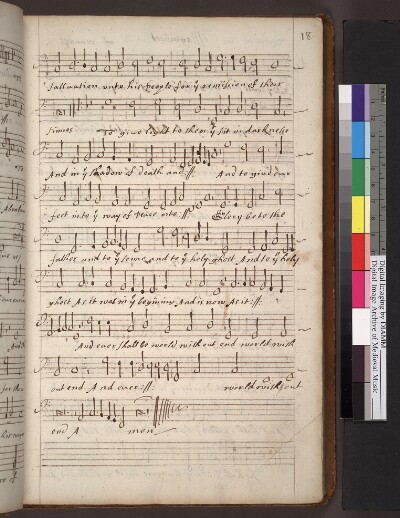 18
Salluation unto his people for yͤ remission of their
sinnes To give light to them yͭ sit in darknesse
And in yͤ shadow of death and :||: And to guid our
feet into yͤ way of peace into :||: Glory be to the
father and to yͤ sonne and to yͤ holy ghost And to yͤ holy
ghost As it was in yͤ beginning And is now As it :||:
And ever shall be world without end world with
out end And ever :||: world without
end A men
Digital Imaging by DIAMM
Digital Image Archive of Medieval Music